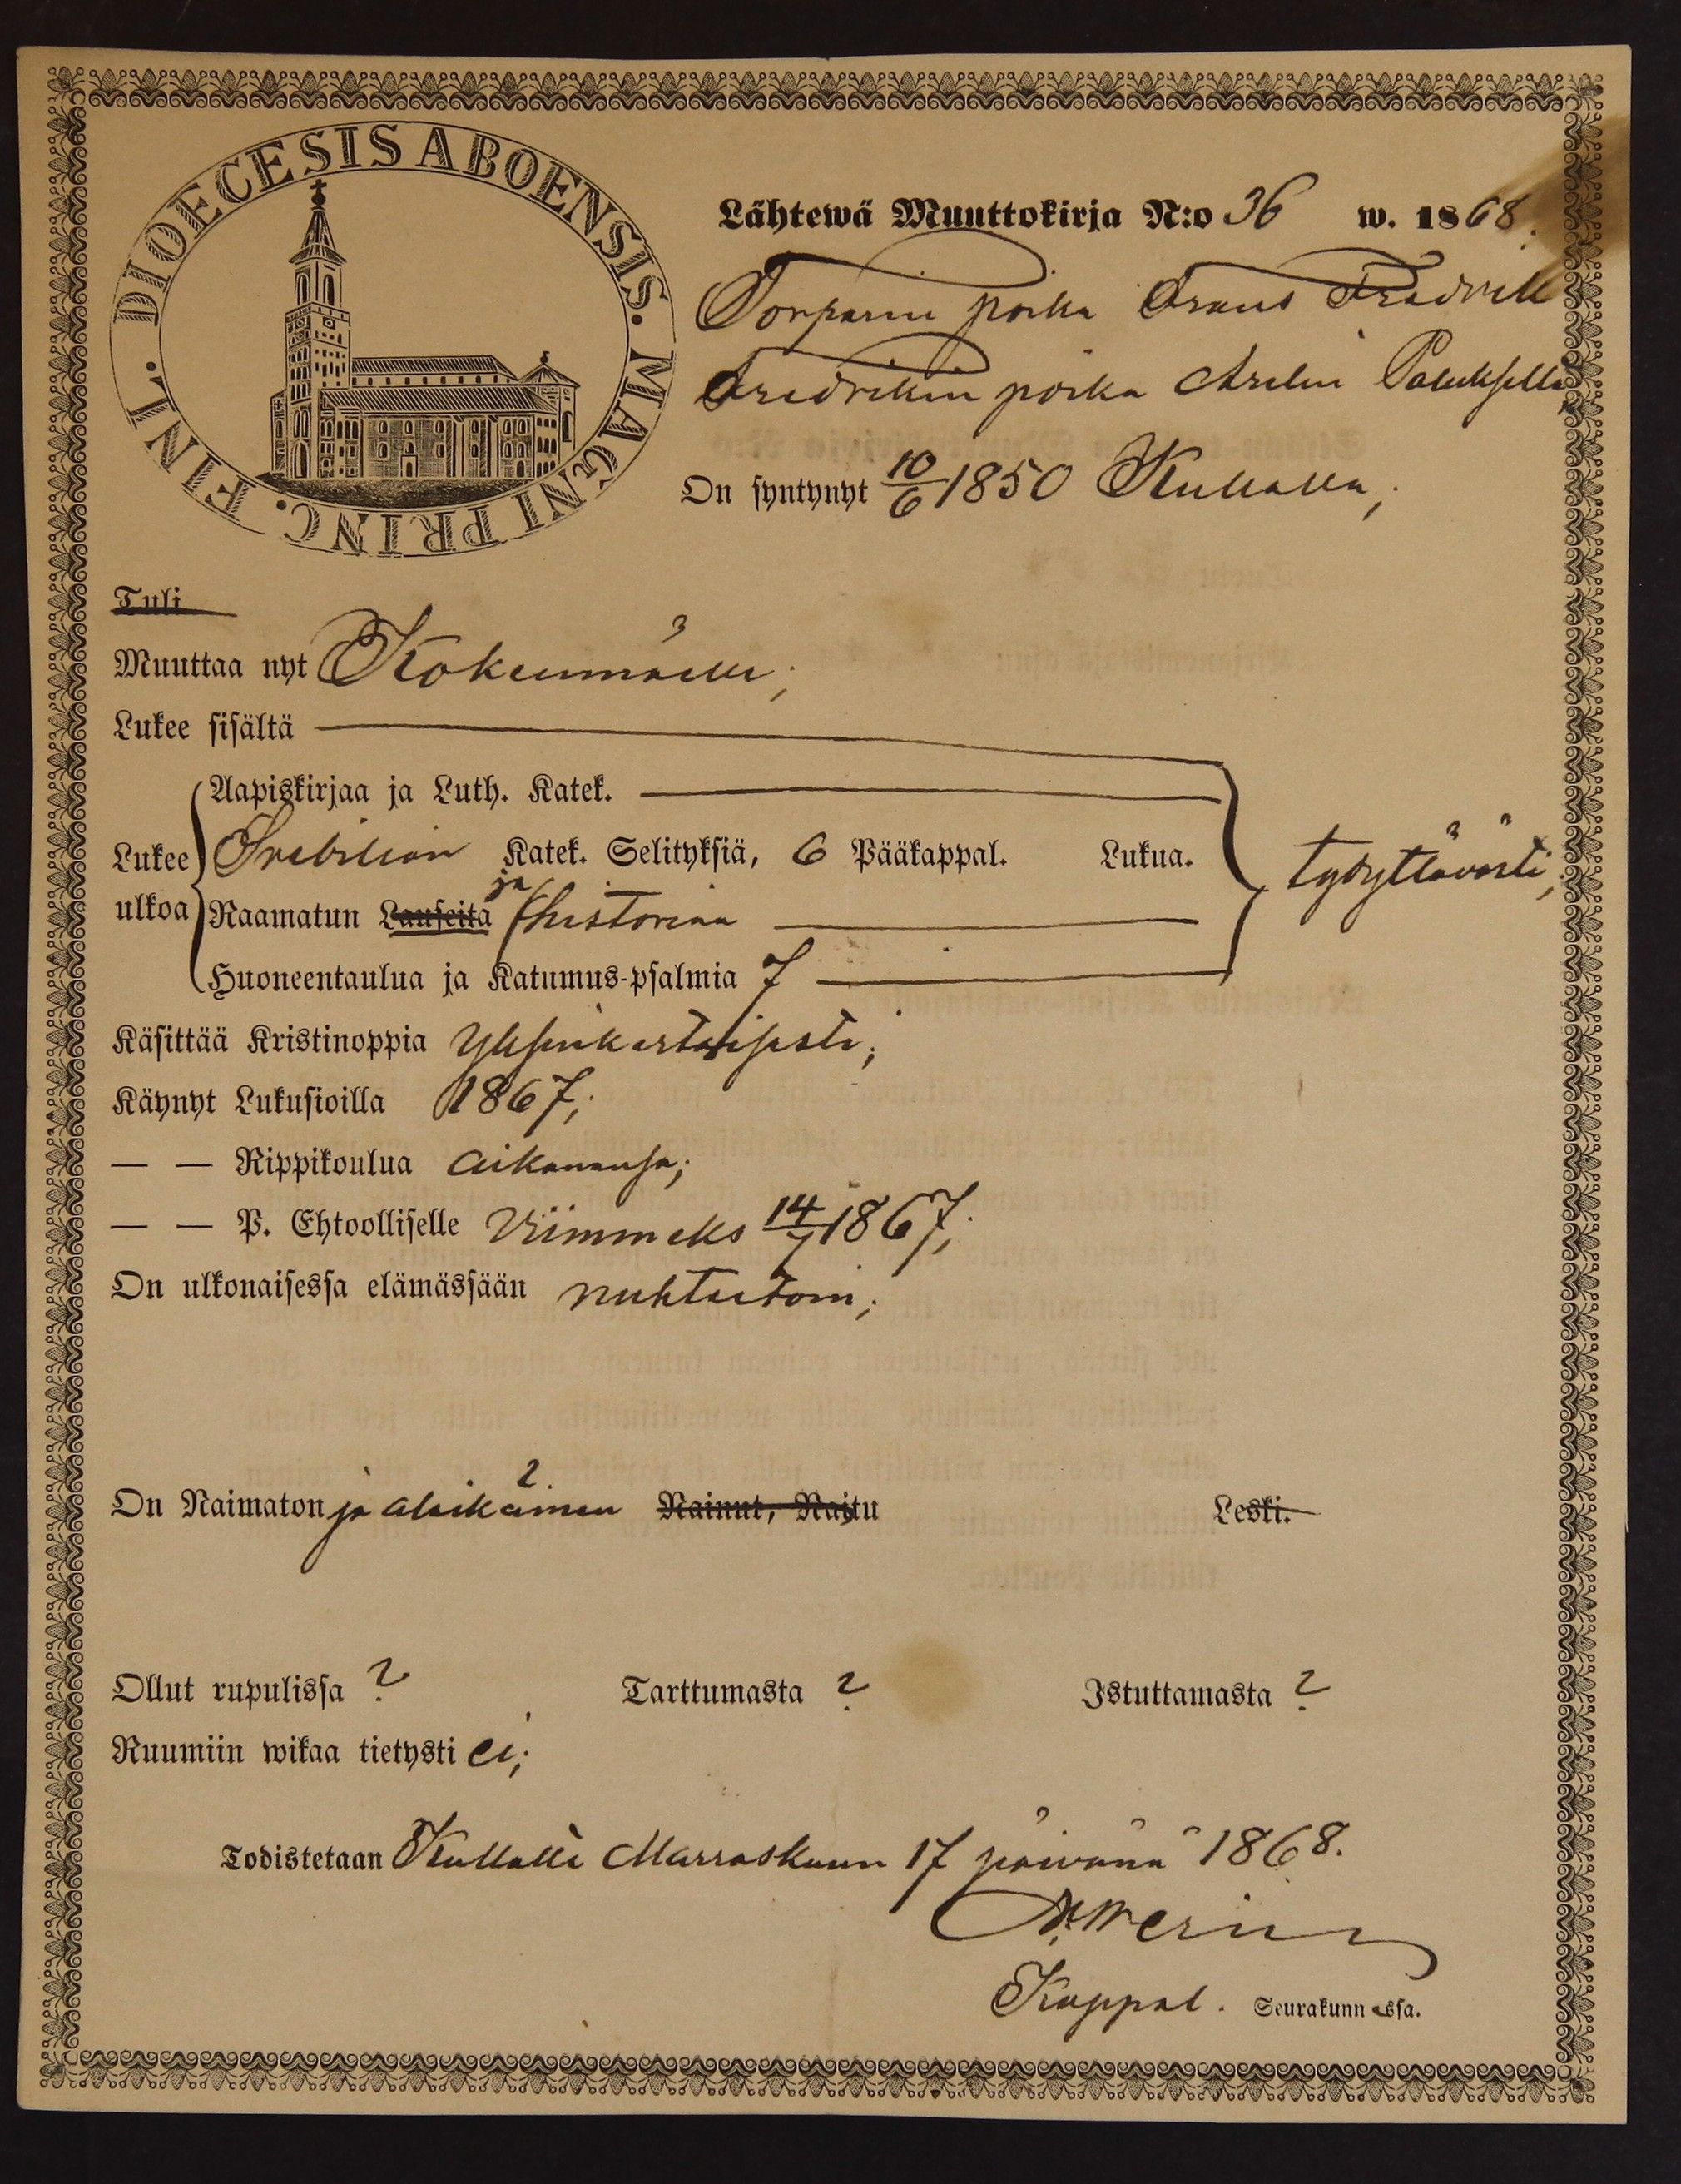 DIOECESIS ABOENSIS. MAGNI PRINC. FINL.
Lähtewä Muuttokirja N:o 36 w. 1868.
Torparin poika Frans Fredrik
Fredrikin poika Palukselta
On syntynyt 10/6 1850 Kullalla;
Tuli
Muuttaa nyt Kokeumäelle;
Lukee sisältä
Aapiskirjaa ja Luth. Katek.
Lukee Svebiliön Katek. Selityksiä, 6 Pääkappal. Lukua. tydyttävästi;
ulkoa Raamatun Lauseita ja historiaa
Huoneentaulua ja Katumus-psalmia 7
Käsittää Kristinoppia Yksinkertaisesti;
Käynyt Lukusioilla 1867;
— — Rippikoulua aikanansa;
— — P. Ehtoolliselle Viimmeks 14/7 1867;
On ulkonaisessa elämässään nuhteetoin;
On Naimaton ja alaikäinen Nainut, Naitu Leski.
Ollut rupulissa ? Tarttumasta ? Istuttamasta ?
Ruumiin wikaa tietysti ei;
Todistetaan Kullalla Marraskuun 17 päivänä 1868.
Kappal. Seurakunnassa.